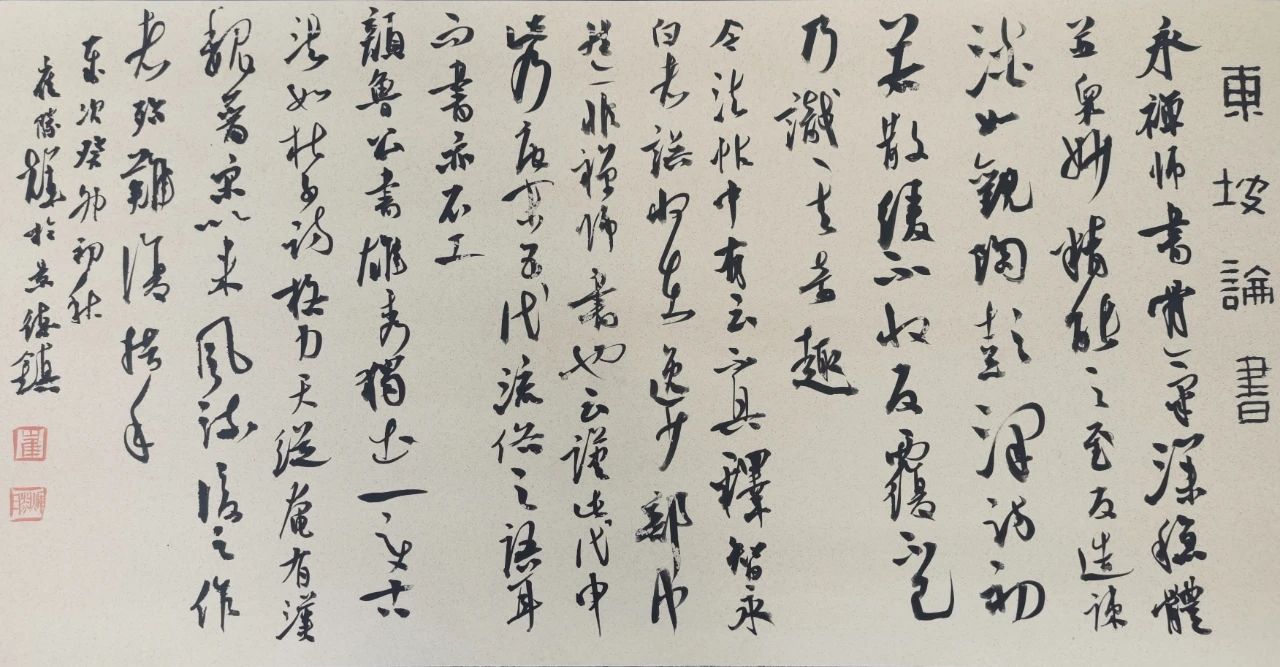 東坡論書
永禪師書骨氣深穩體
並衆妙精能之至反造疎
淡如觀陶彭澤詩初
若散緩不收反覆不已
乃識其奇趣
今法帖中有云不具釋智永
白者誤收在逸少部中
然亦非禪師書也云謹此代申
此乃唐末五代流俗之語耳
而書亦不工
顏魯公書雄秀獨出一變古
法如杜子詩格力天縱奄有漢
魏晉宋以來風流後之作
者殆難復措手
歲次癸卯初秋
崔於景德鎮
崔